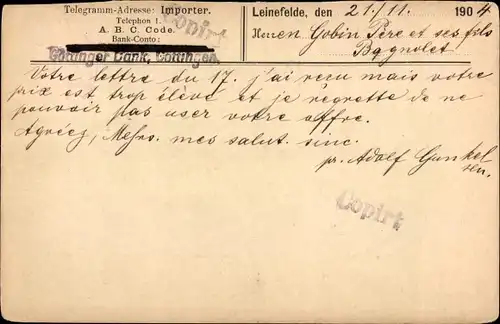 Telegramm-Adresse: Importer.
Telephon 1.
A. B. C. Code.
Bank-Conto:
Göttinger Bank, Göttingen.
Copirt
Leinefelde, den 21./11. 1904
Herren Gobin Père et ses fils
Bagnolet
Votre lettre du 17. j'ai reçu mais votre
prix est trop élève et je regrette de ne
pouvoir pas user votre offre.
Agréez, Messrs. mes salut. sinc.
pr. Adolf Gunkel
sen.
Copirt